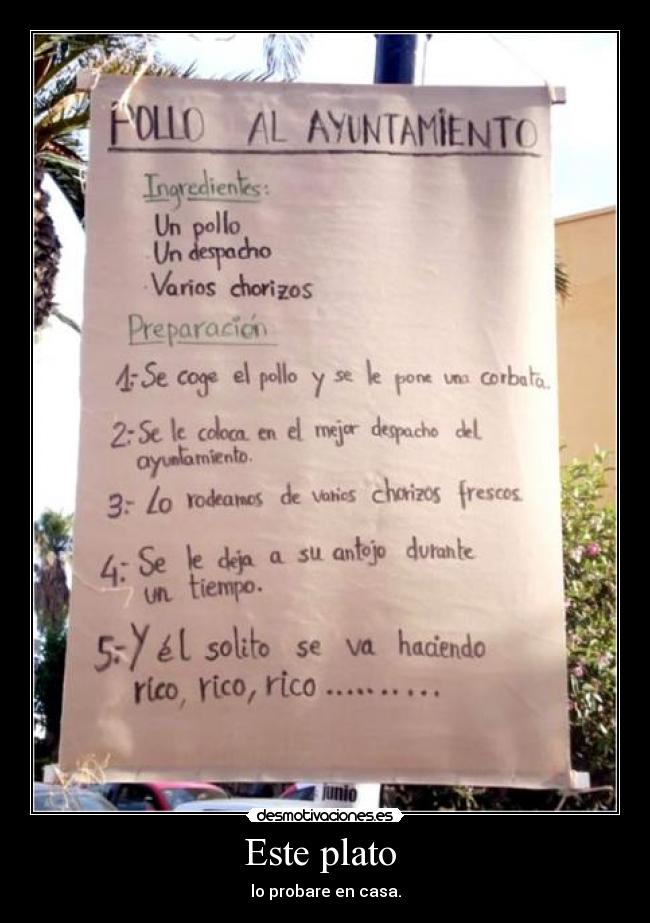 POLLO AL AYUNTAMIENTO
Ingredientes:
Un pollo
Un despacho
Varios chorizos
Preparación
1:- Se coge el pollo y se le pone una corbata.
2:- Se le coloca en el mejor despacho del
ayuntamiento.
3:- Lo rodeamos de varios chorizos frescos.
4:- Se le deja a su antojo durante
un tiempo.
5:- Y él solito se va haciendo
rico, rico, rico ..........
junio
desmotivaciones.es
Este plato
lo probare en casa.